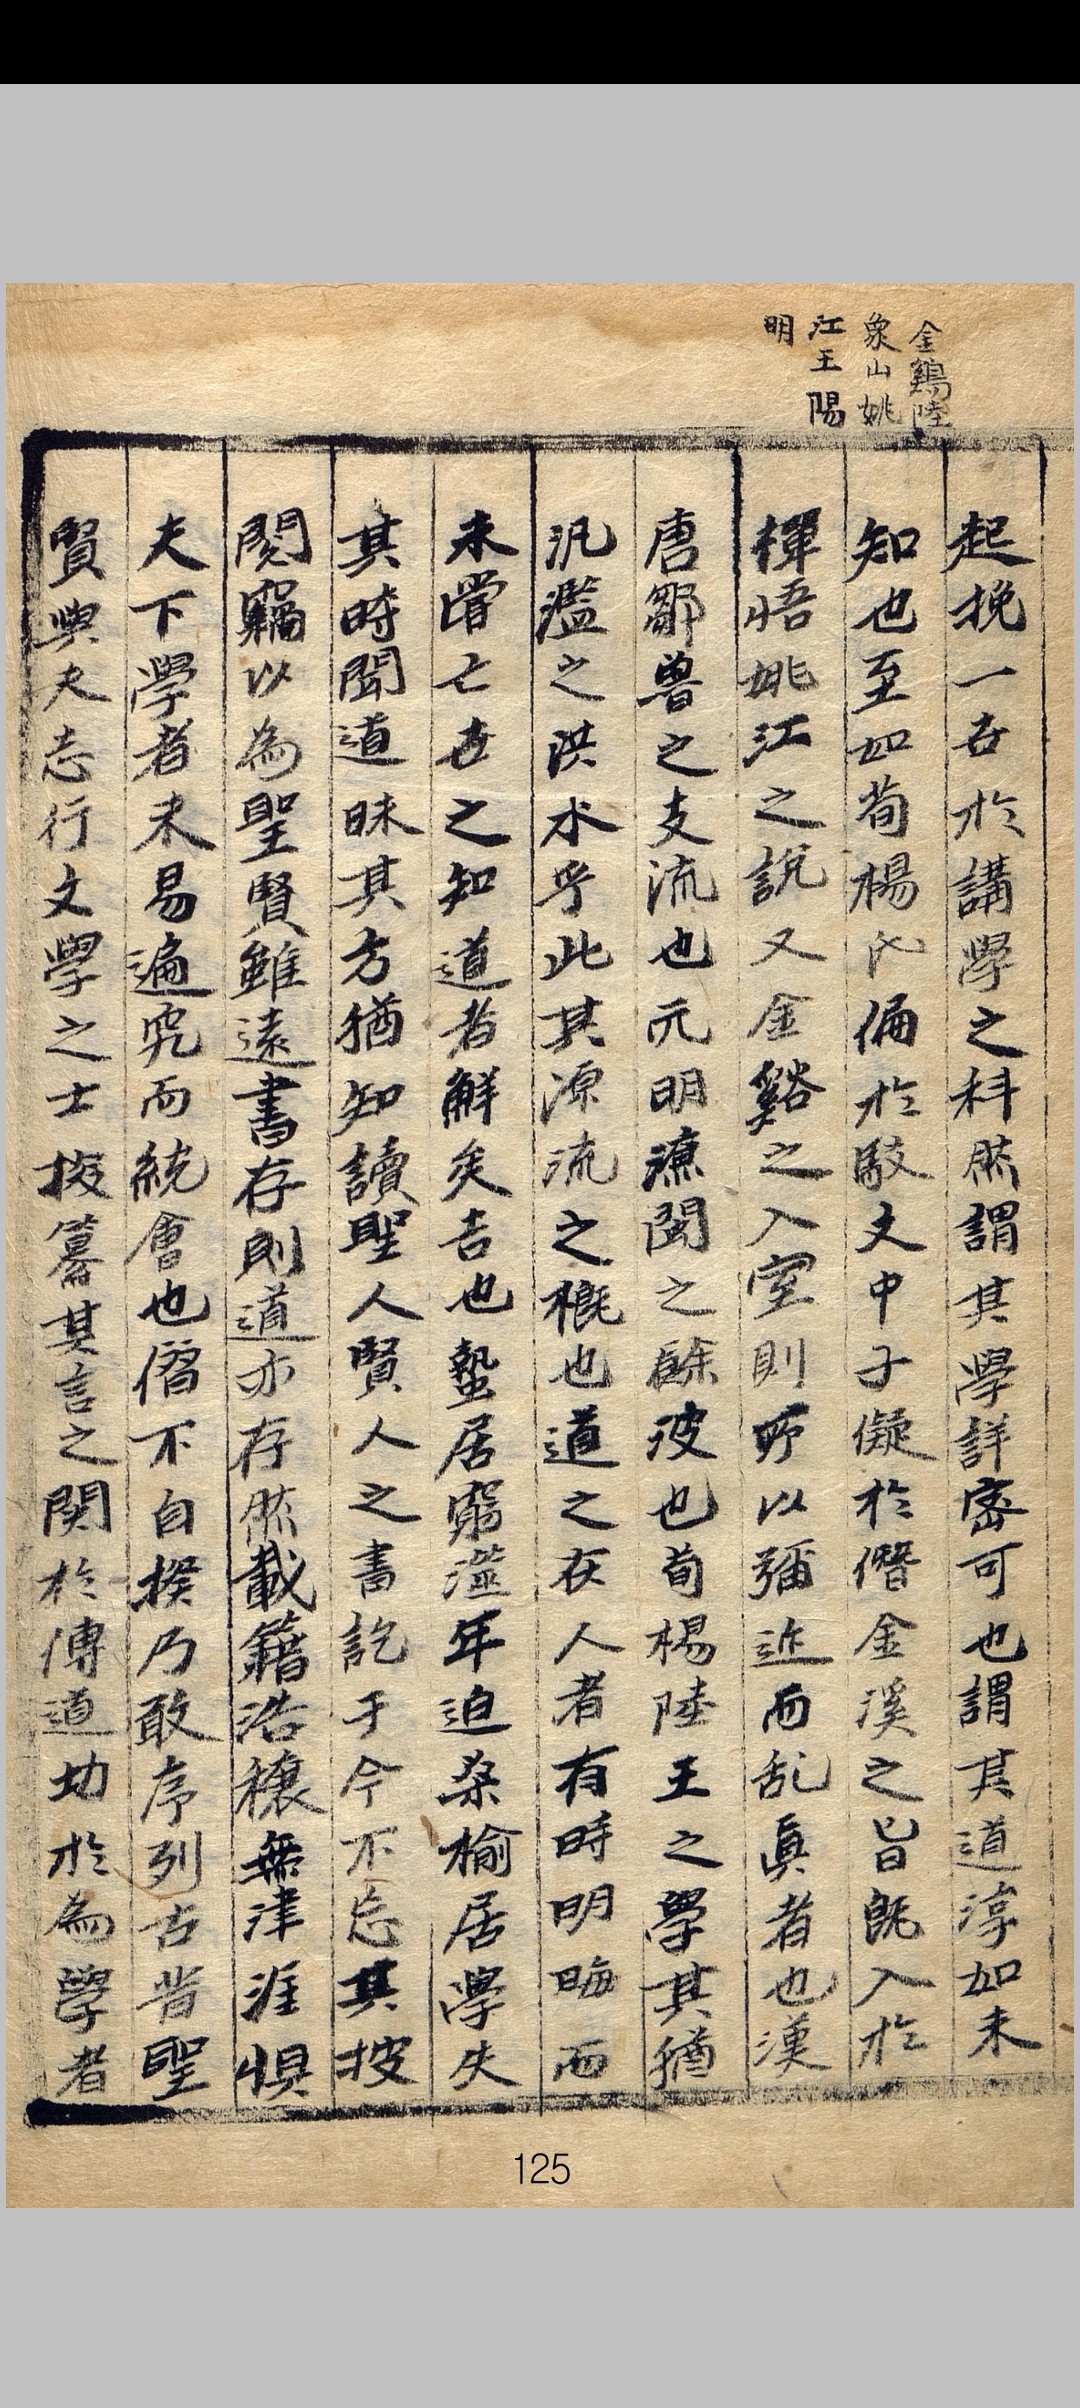 金鷄陸
象山姚
江王陽
明
起挽一古於講學之科然謂其學詳密可也謂其道淳如未
知也至如荀楊氏偏於駁文中子儗於僭金溪之旨既入於
禪悟姚江之說又金谿之入室則所以彌近而乱眞者也漢
唐鄒魯之支流也元明濂閩之餘波也荀楊陸王之學其猶
汎濫之洪水乎此其源流之槪也道之在人者有時明晦而
未嘗亡世之知道者鮮矣吉也蟄居窮滋年迫桑榆居學失
其時聞道昧其方猶知讀聖人賢人之書訖于今不忘其披
閱竊以為聖賢雖遠書存則道亦存然載籍浩穰無津涯惧
夫下學者未易遍究而統會也僭不自揆乃敢序列古昔聖
賢與夫志行文學之士掇纂其言之関於傳道功於為學者
125